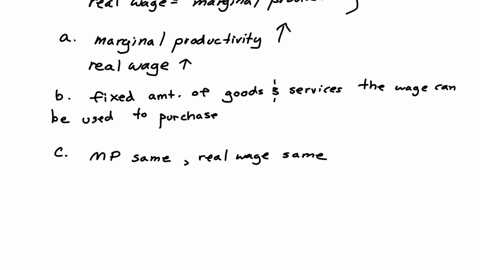 real wage = marginal produc
a. marginal productivity ↑
real wage ↑
b. fixed amt. of goods & services the wage can
be used to purchase
c. MP same, real wage same